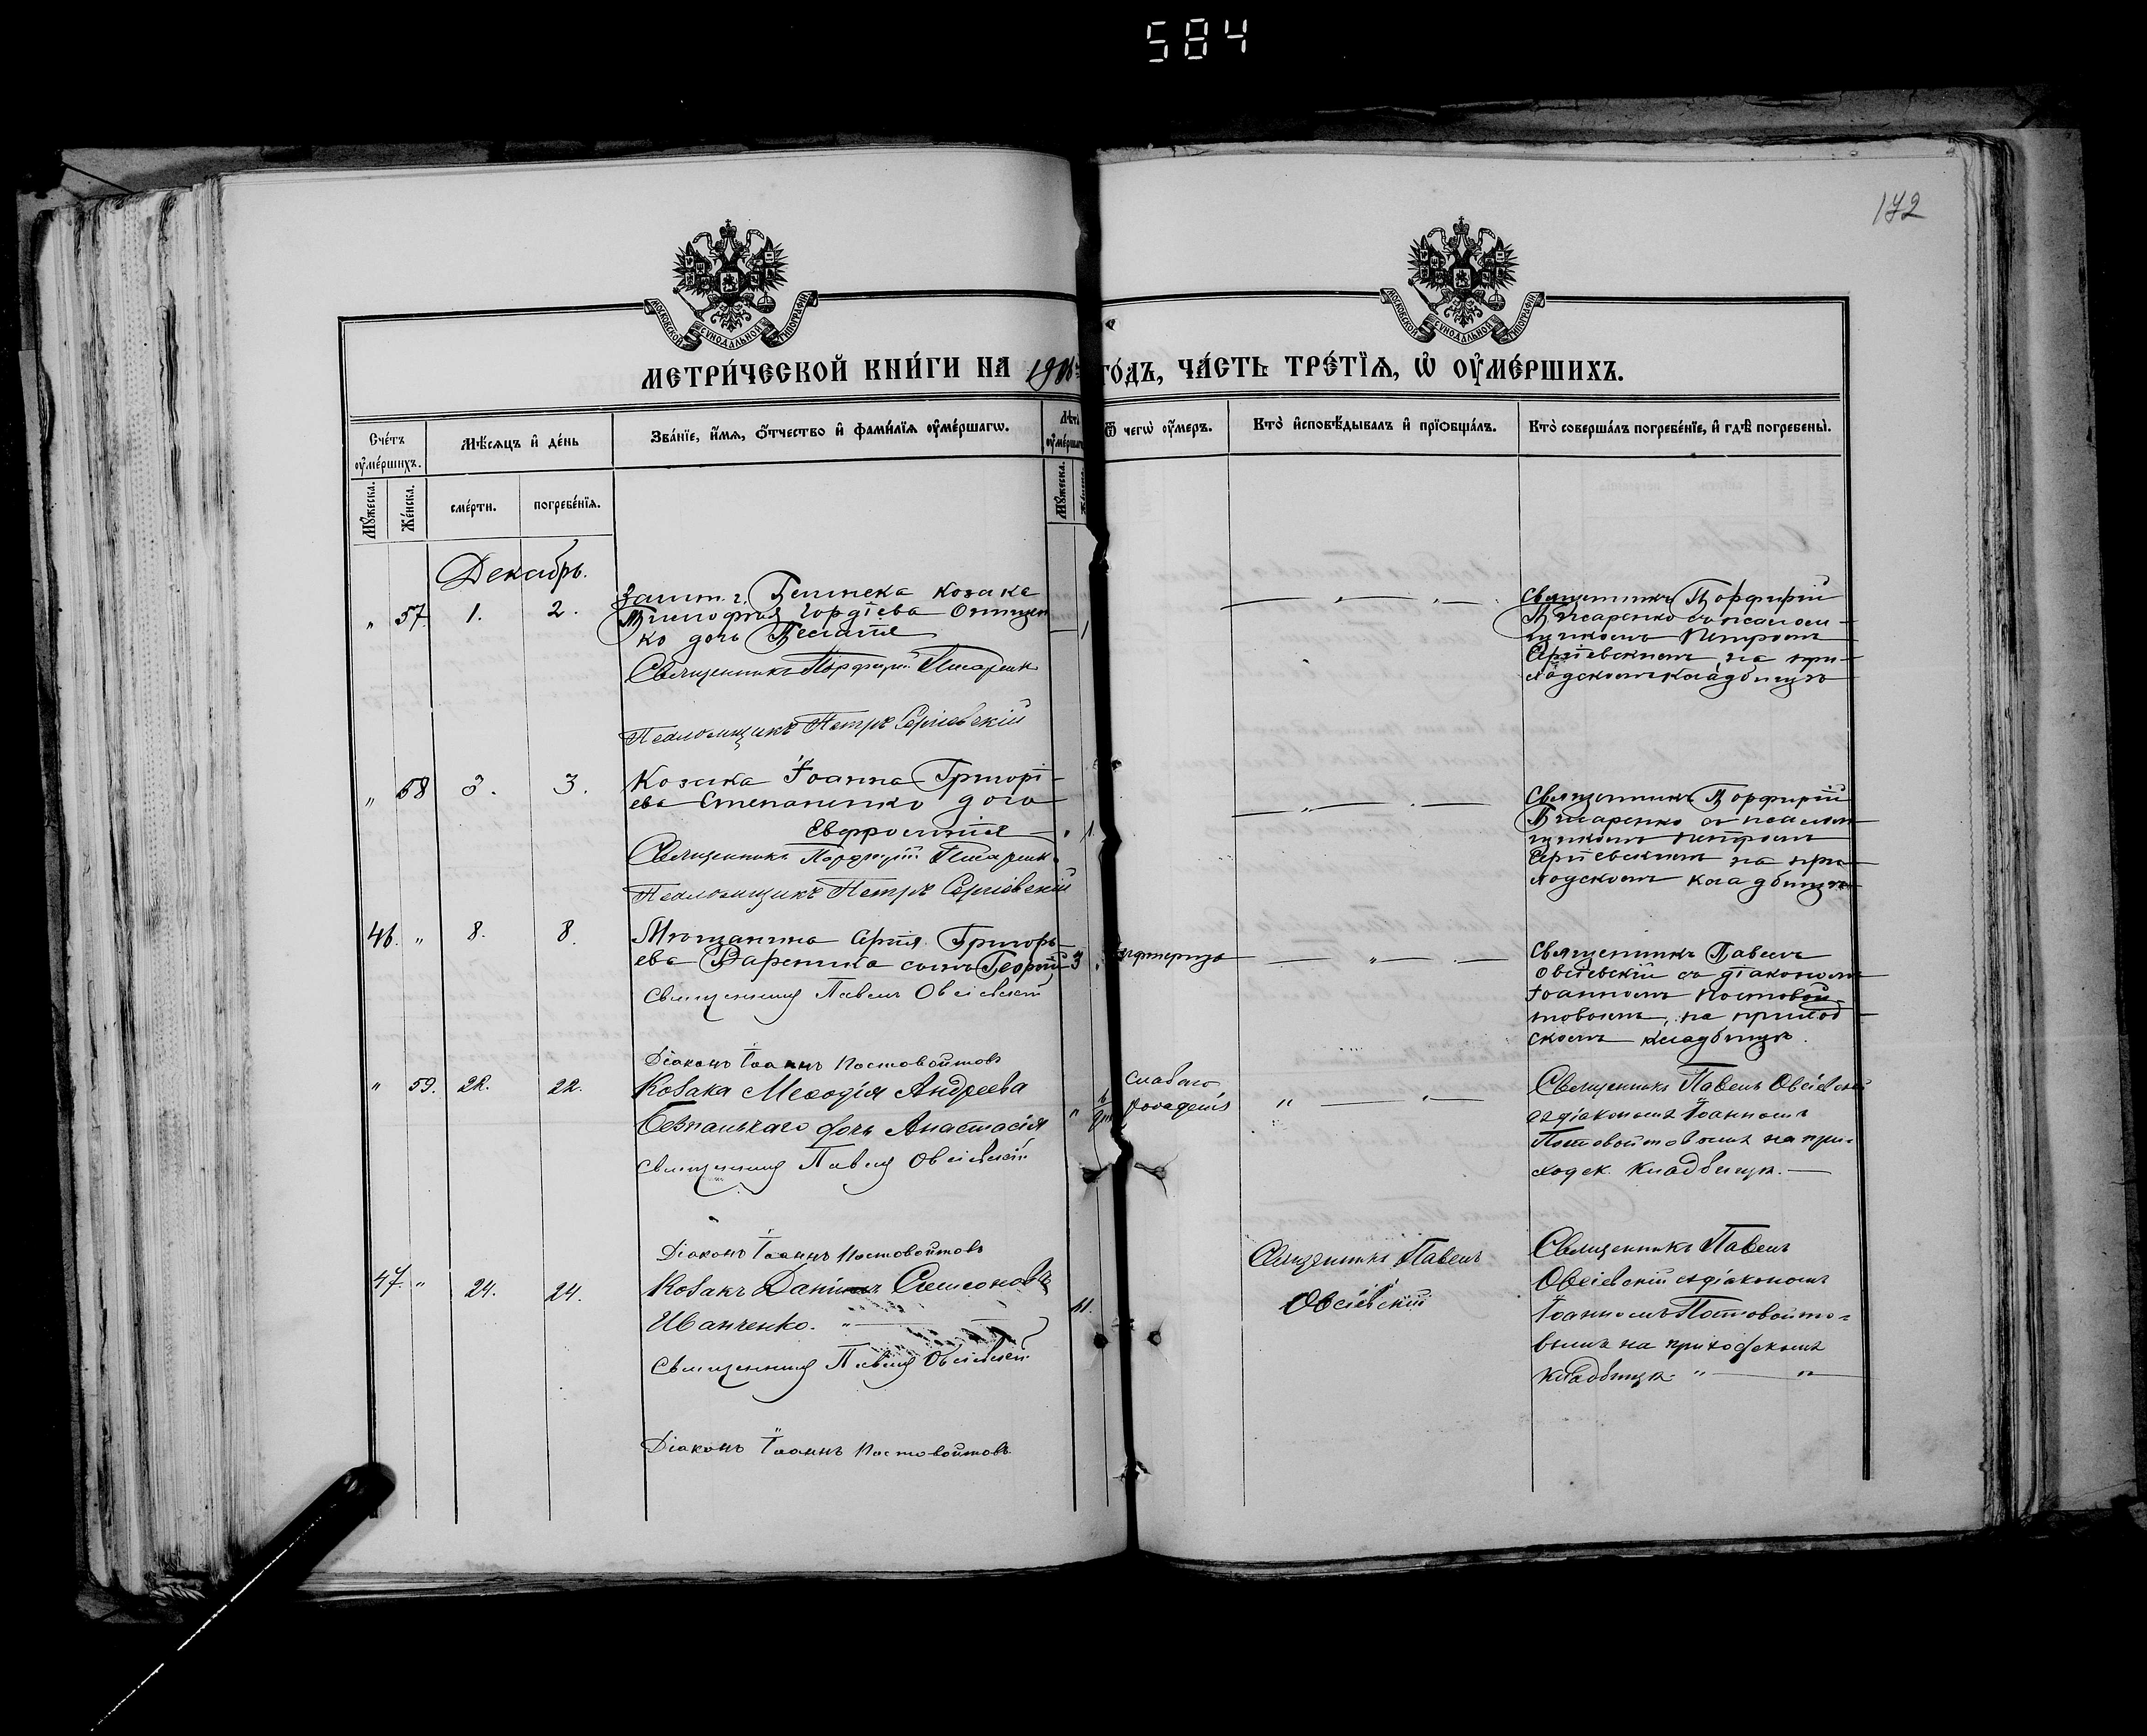 584
172
МОСКОВСКОЙ СѴНОДАЛЬНОЙ ТИПОГРАФІИ
МОСКОВСКОЙ СѴНОДАЛЬНОЙ ТИПОГРАФІИ
МЕТРИ́ЧЕСКОЙ КНИ́ГИ НА 190 ГО́ДЪ, ЧА́СТЬ ТРЕ́ТЇѦ, Ѽ ОУ҆МЕ́РШИХЪ.
Сче́тъ оу҆ме́ршихъ.
Мѣ́сѧцъ и҆ де́нь
Зва́нїе, и҆́мѧ, ѻ҆́тчество и҆ фами́лїѧ оу҆ме́ршагѡ.
Лѣт
оу҆ме́ршаг
Ѿ чегѡ̀ оу҆́меръ.
Кто̀ и҆сповѣ́дывалъ и҆ прїѻбща́лъ.
Кто̀ соверша́лъ погребе́нїе, и҆ гдѣ̀ погребены̀.
Мꙋ́жеска.
Же́нска.
сме́рти.
погребе́нїѧ.
Мꙋ́жеска.
Декабрь.
" 57. 1. 2.
Зашт. г. Глинска козака
Гордіева Онищен
ко дочь
1
Священникъ Порфирій Писаренк
Псаломщикъ Петръ Сергіевскій
Священникъ Порфирій
Писаренко съ псалом-
щикомъ Петромъ
Сергіевскимъ, на при-
ходскомъ кладбищѣ
" 58 3. 3.
Козака Іоанна Григорі-
ева Степаненко дочь
Евфросинія
1
Священникъ Порфирій Писаренк
Псаломщикъ Петръ Сергіевскій
Священникъ Порфирій
Писаренко съ псалом
щикомъ Петромъ
Сергіевскимъ на при-
ходскомъ кладбищѣ
46. " 8. 8.
Мѣщанина Сергія Григорь-
ева Вареника сынъ Георгій
3
дифтерита
Священникъ Павелъ Овсіевскій
Діаконъ Іоаннъ Постовойтовъ
Священникъ Павелъ
Овсіевскій съ діакономъ
Іоанномъ Постовой-
товымъ, на приход-
скомъ кладбищѣ.
" 59. 22. 22.
Козака Меѳодія Андреева
Безпалькаго дочь Анастасія
слабаго
рожденія
Священникъ Павелъ Овсіевскій
Діаконъ Іоаннъ Постовойтовъ
Священникъ Павелъ Овсіевскій
съ діакономъ Іоанномъ
Постовойтовымъ на при-
ходск. кладбищѣ.
47. " 24. 24.
Козакъ Даніилъ Симеоновъ
Иванченко.
61.
Священникъ Павелъ Овсіевскій
Діаконъ Іоаннъ Постовойтовъ
Священникъ Павелъ
Овсіевскій
Священникъ Павелъ
Овсіевскій съ діакономъ
Іоанномъ Постовойто-
вымъ на приходскомъ
кладбищѣ.